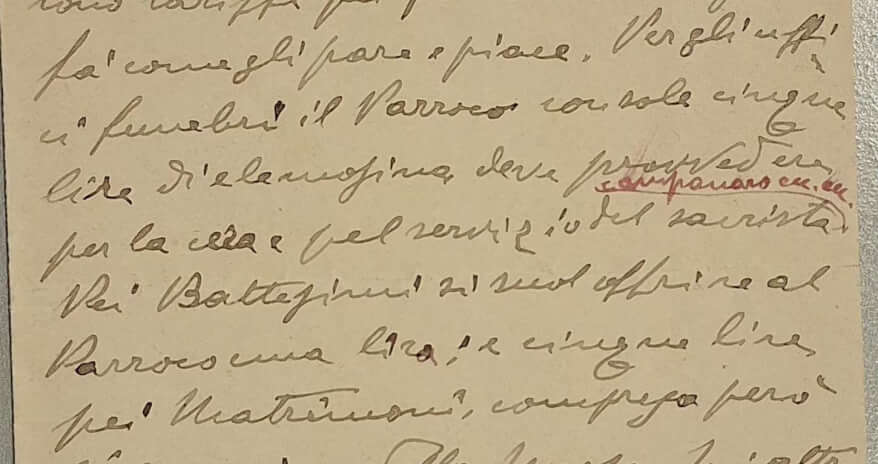 sono tariffe per
fa come gli pare e piace. Per gli uffi
ci funebri il Parroco con sole cinque
lire di elemosina, deve provvedere
campanaro
per la cera e pel servizio del sacrista.
Pei Battesimi si suol offrire al
Parroco una lira; e cinque lire
pei Matrimoni, compresa però